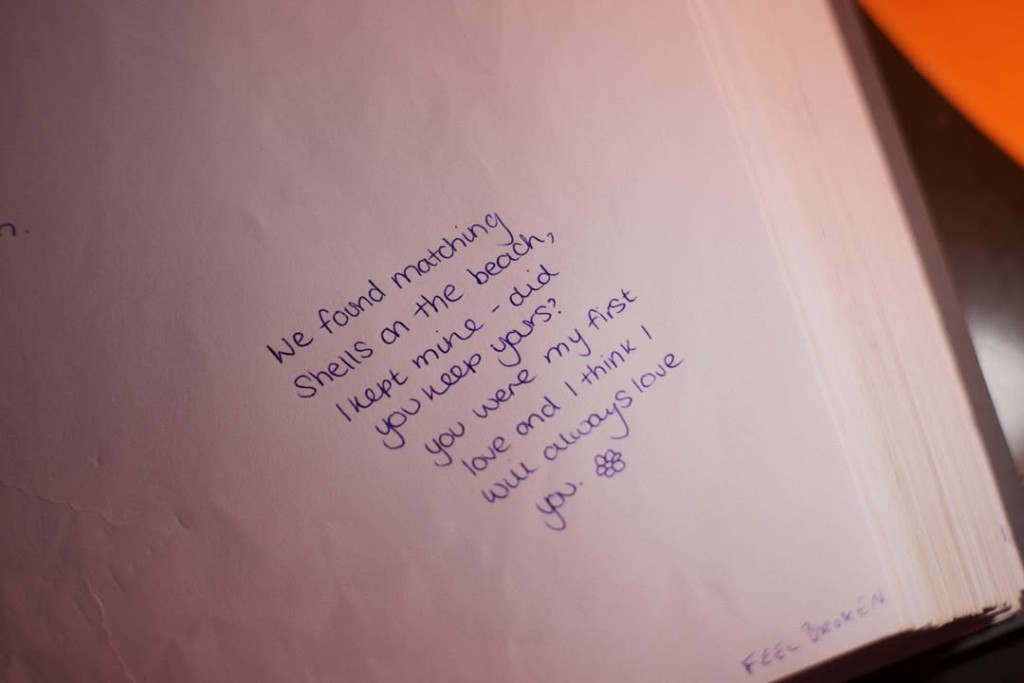 We found matching
Shells on the beach,
I kept mine - did
you keep yours?
you were my first
love and I think I
will always love
you.
FEEL BROKEN